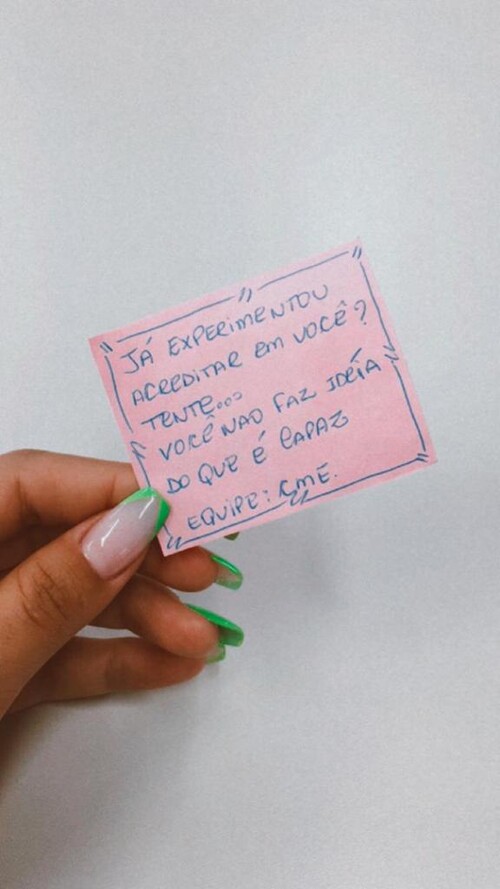 JÁ EXPERIMENTOU
ACREDITAR EM VOCÊ?
TENTE...
VOCÊ NAO FAZ IDÉIA
DO QUE É CAPAZ
EQUIPE: CME.